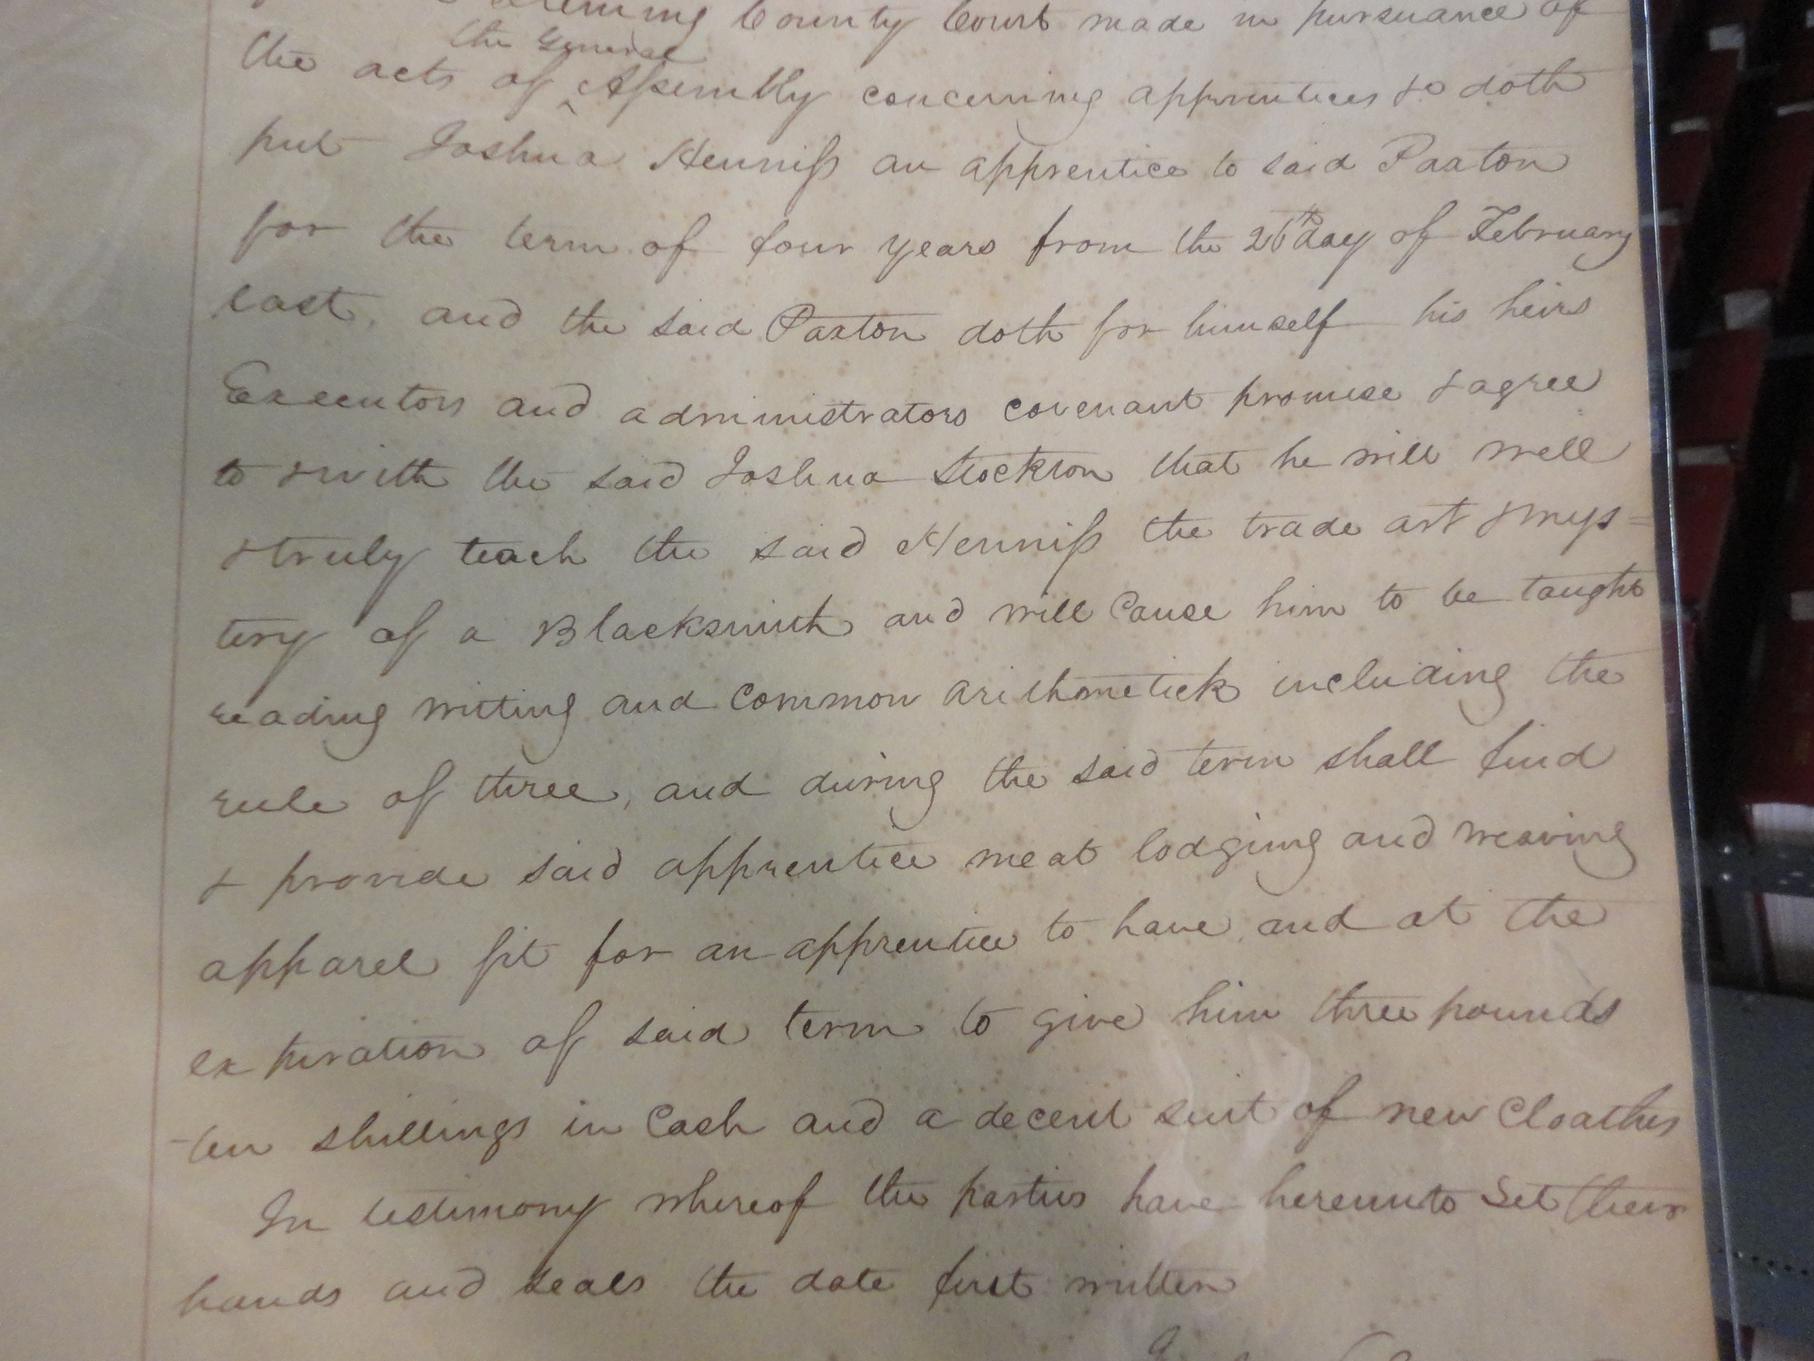 County Court made in pursuance of
the General
the acts of ^ Assembly concerning apprentices &c doth
put Joshua Henniss an apprentice to said Paxton
for the term of four years from the 26th day of February
last, and the said Paxton doth for himself his heirs
Executors and administrators covenant promise & agree
to & with the said Joshua Stockton that he will well
& truly teach the said Henniss the trade art & mys=
tery of a Blacksmith and will Cause him to be taught
reading writing and Common arithmetick including the
rule of three, and during the said term shall find
& provide said apprentice meat lodging and wearing
apparel fit for an apprentice to have and at the
expiration of said term to give him three pounds
ten shillings in Cash and a decent suit of new Cloathes
In testimony whereof the parties have hereunto Set their
hands and seals the date first written